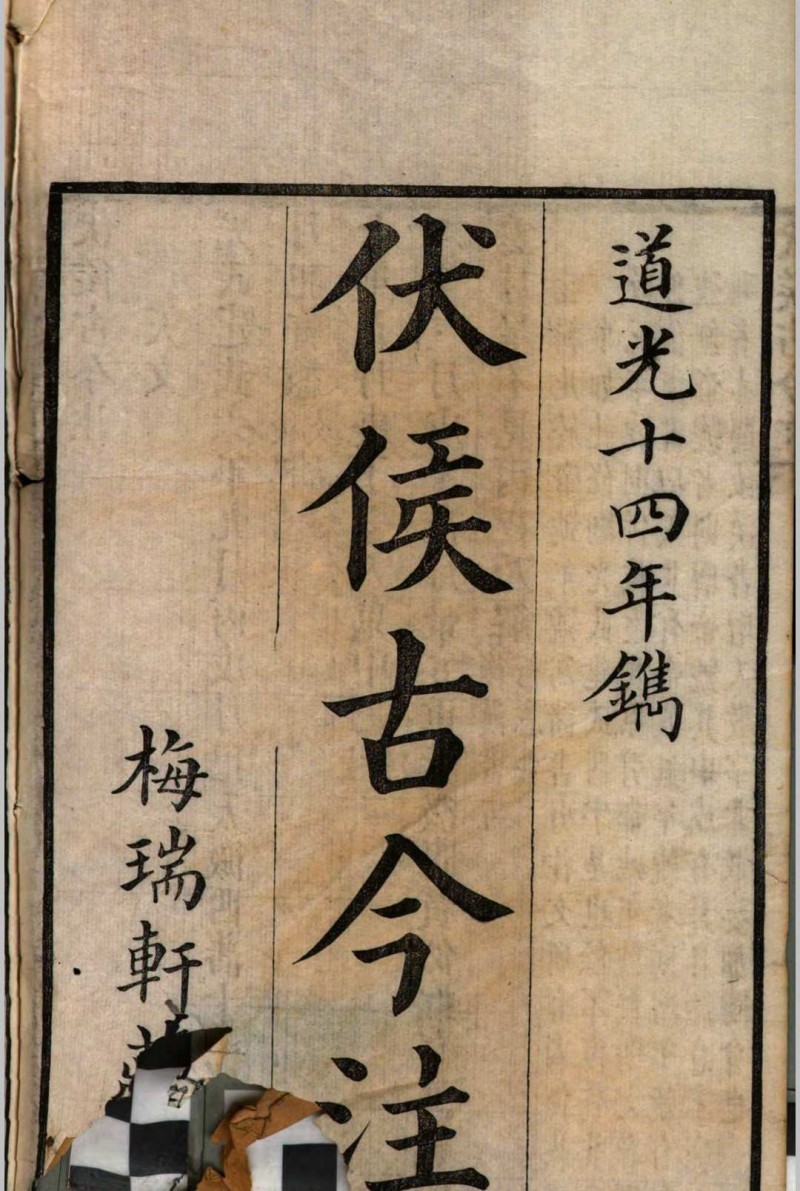 道光十四年鐫
伏侯古今注
梅瑞軒